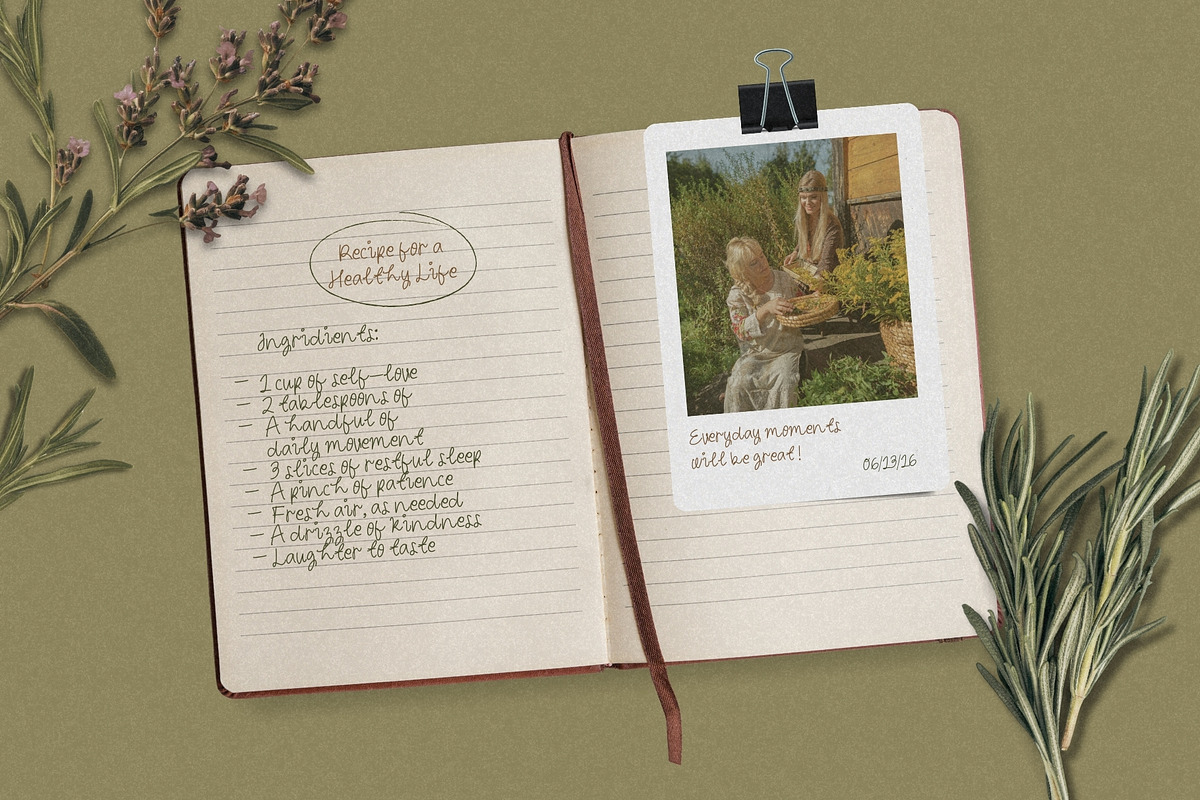 Recipe for a
Healthy Life
Ingridients:
– 1 cup of self-love
– 2 tablespoons of
– A handful of
daily movement
– 3 slices of restful sleep
– A pinch of patience
– Fresh air, as needed
– A drizzle of kindness
– Laughter to taste
Everyday moments
will be great!
06/23/26